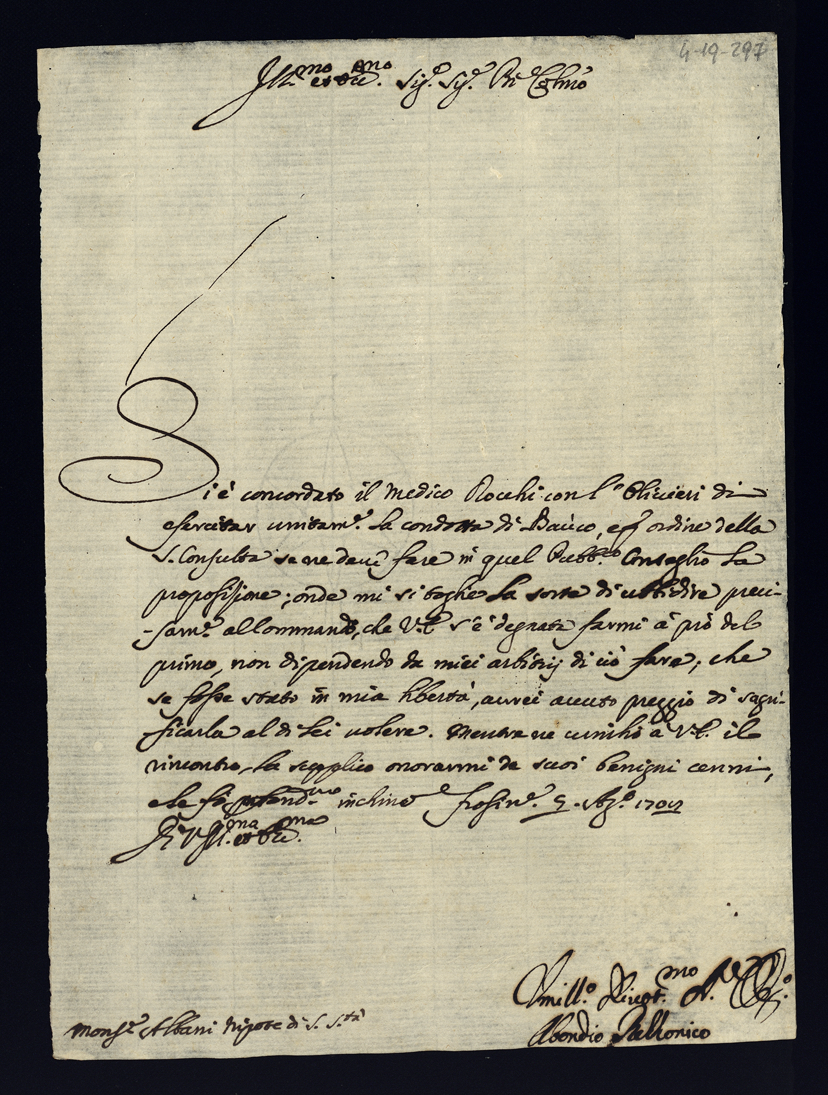 4-19-297
Ill.mo et Ecc.mo Sig.r Sig.r P.ne Col.mo
Si è concordato il Medico Rocchi con l'Olivieri di
esercitar unitam.te la condotta di Bauco, e p ordine della
S. Consulta se ne devè fare in quel Pubb.o Conseglio la
proposizione; onde mi si toglie la sorte di ubbidire preci-
sam.te al Commando, che V.E. s'è degnata farmi à prò del
primo, non dipendendo da miei arbitrij di ciò fare; che
se fosse stato in mia libertà, averei avuto preggio di sagri-
ficarla al di Lei volere. Mentre ne umilio à V.E. il
rincontro, la supplico onorarmi de suoi benigni cenni,
e le fò profond.mo inchino Frosin.e 5 Ag.o
D V. Ill.ma et Ecc.ma
Umill.o Divot.mo
Abondio Rezzonico
Mons.r Albani Nipote di S. S.tà